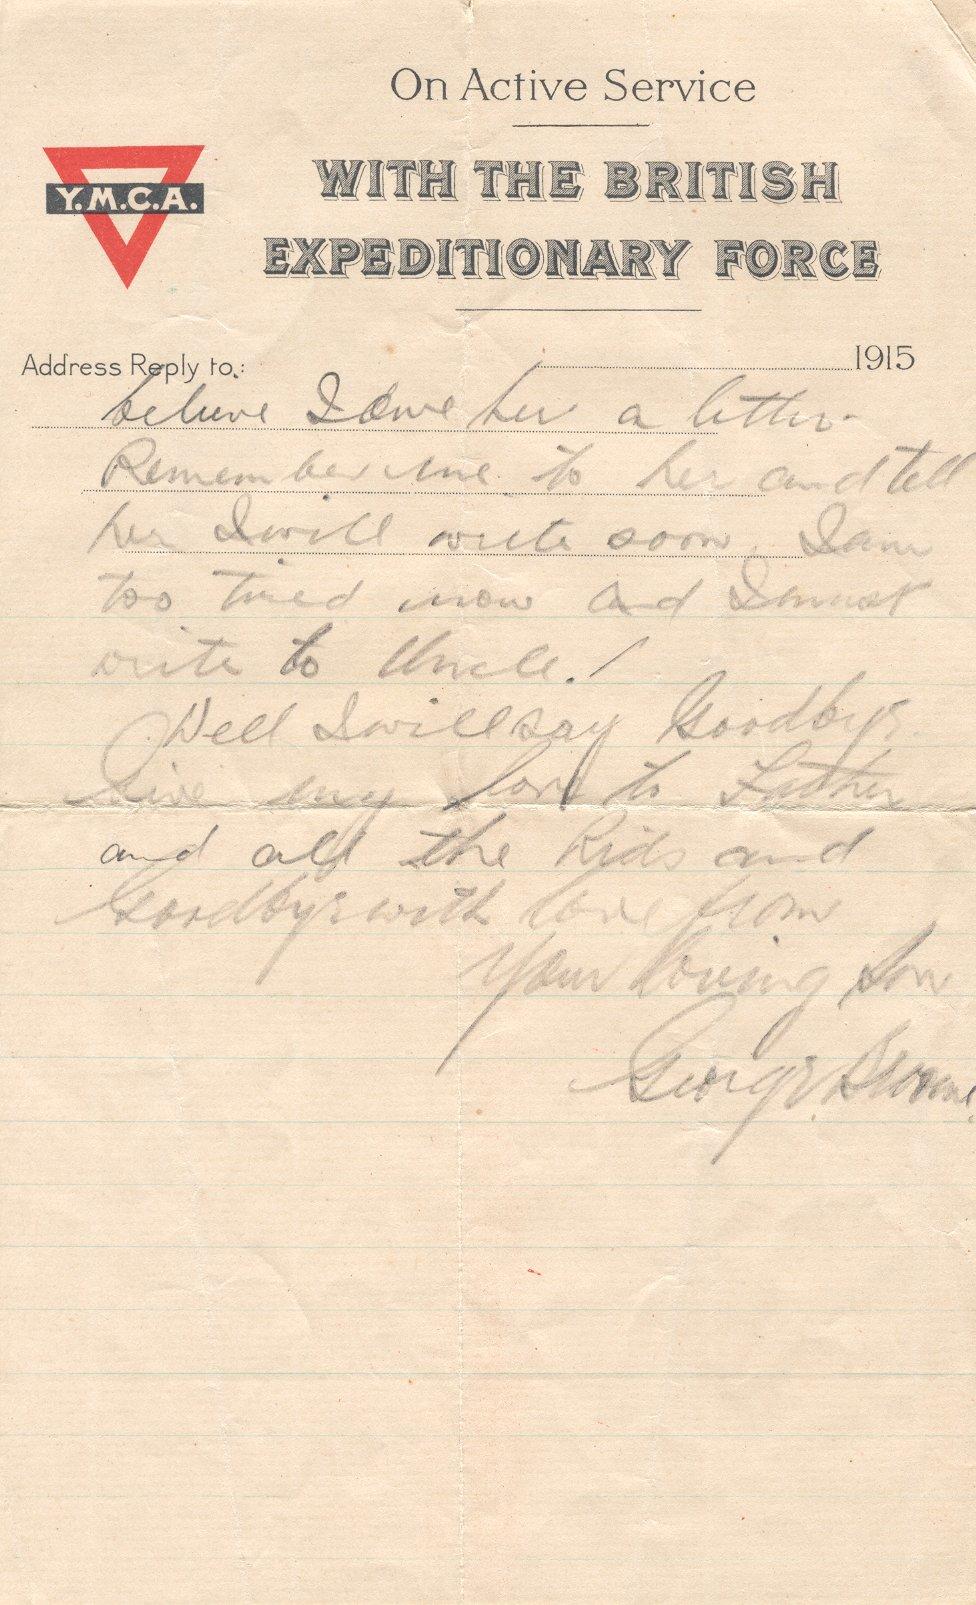 On Active Service
WITH THE BRITISH
EXPEDITIONARY FORCE
Y.M.C.A.
Address Reply to:
1915
believe I owe her a letter.
Remember me to her and tell
her I will write soon. I am
too tired now and I must
write to Uncle!
Well I will say Goodbye.
Give my love to Father
and all the kids and
Goodbye with love from
Your loving Son
George Browne.